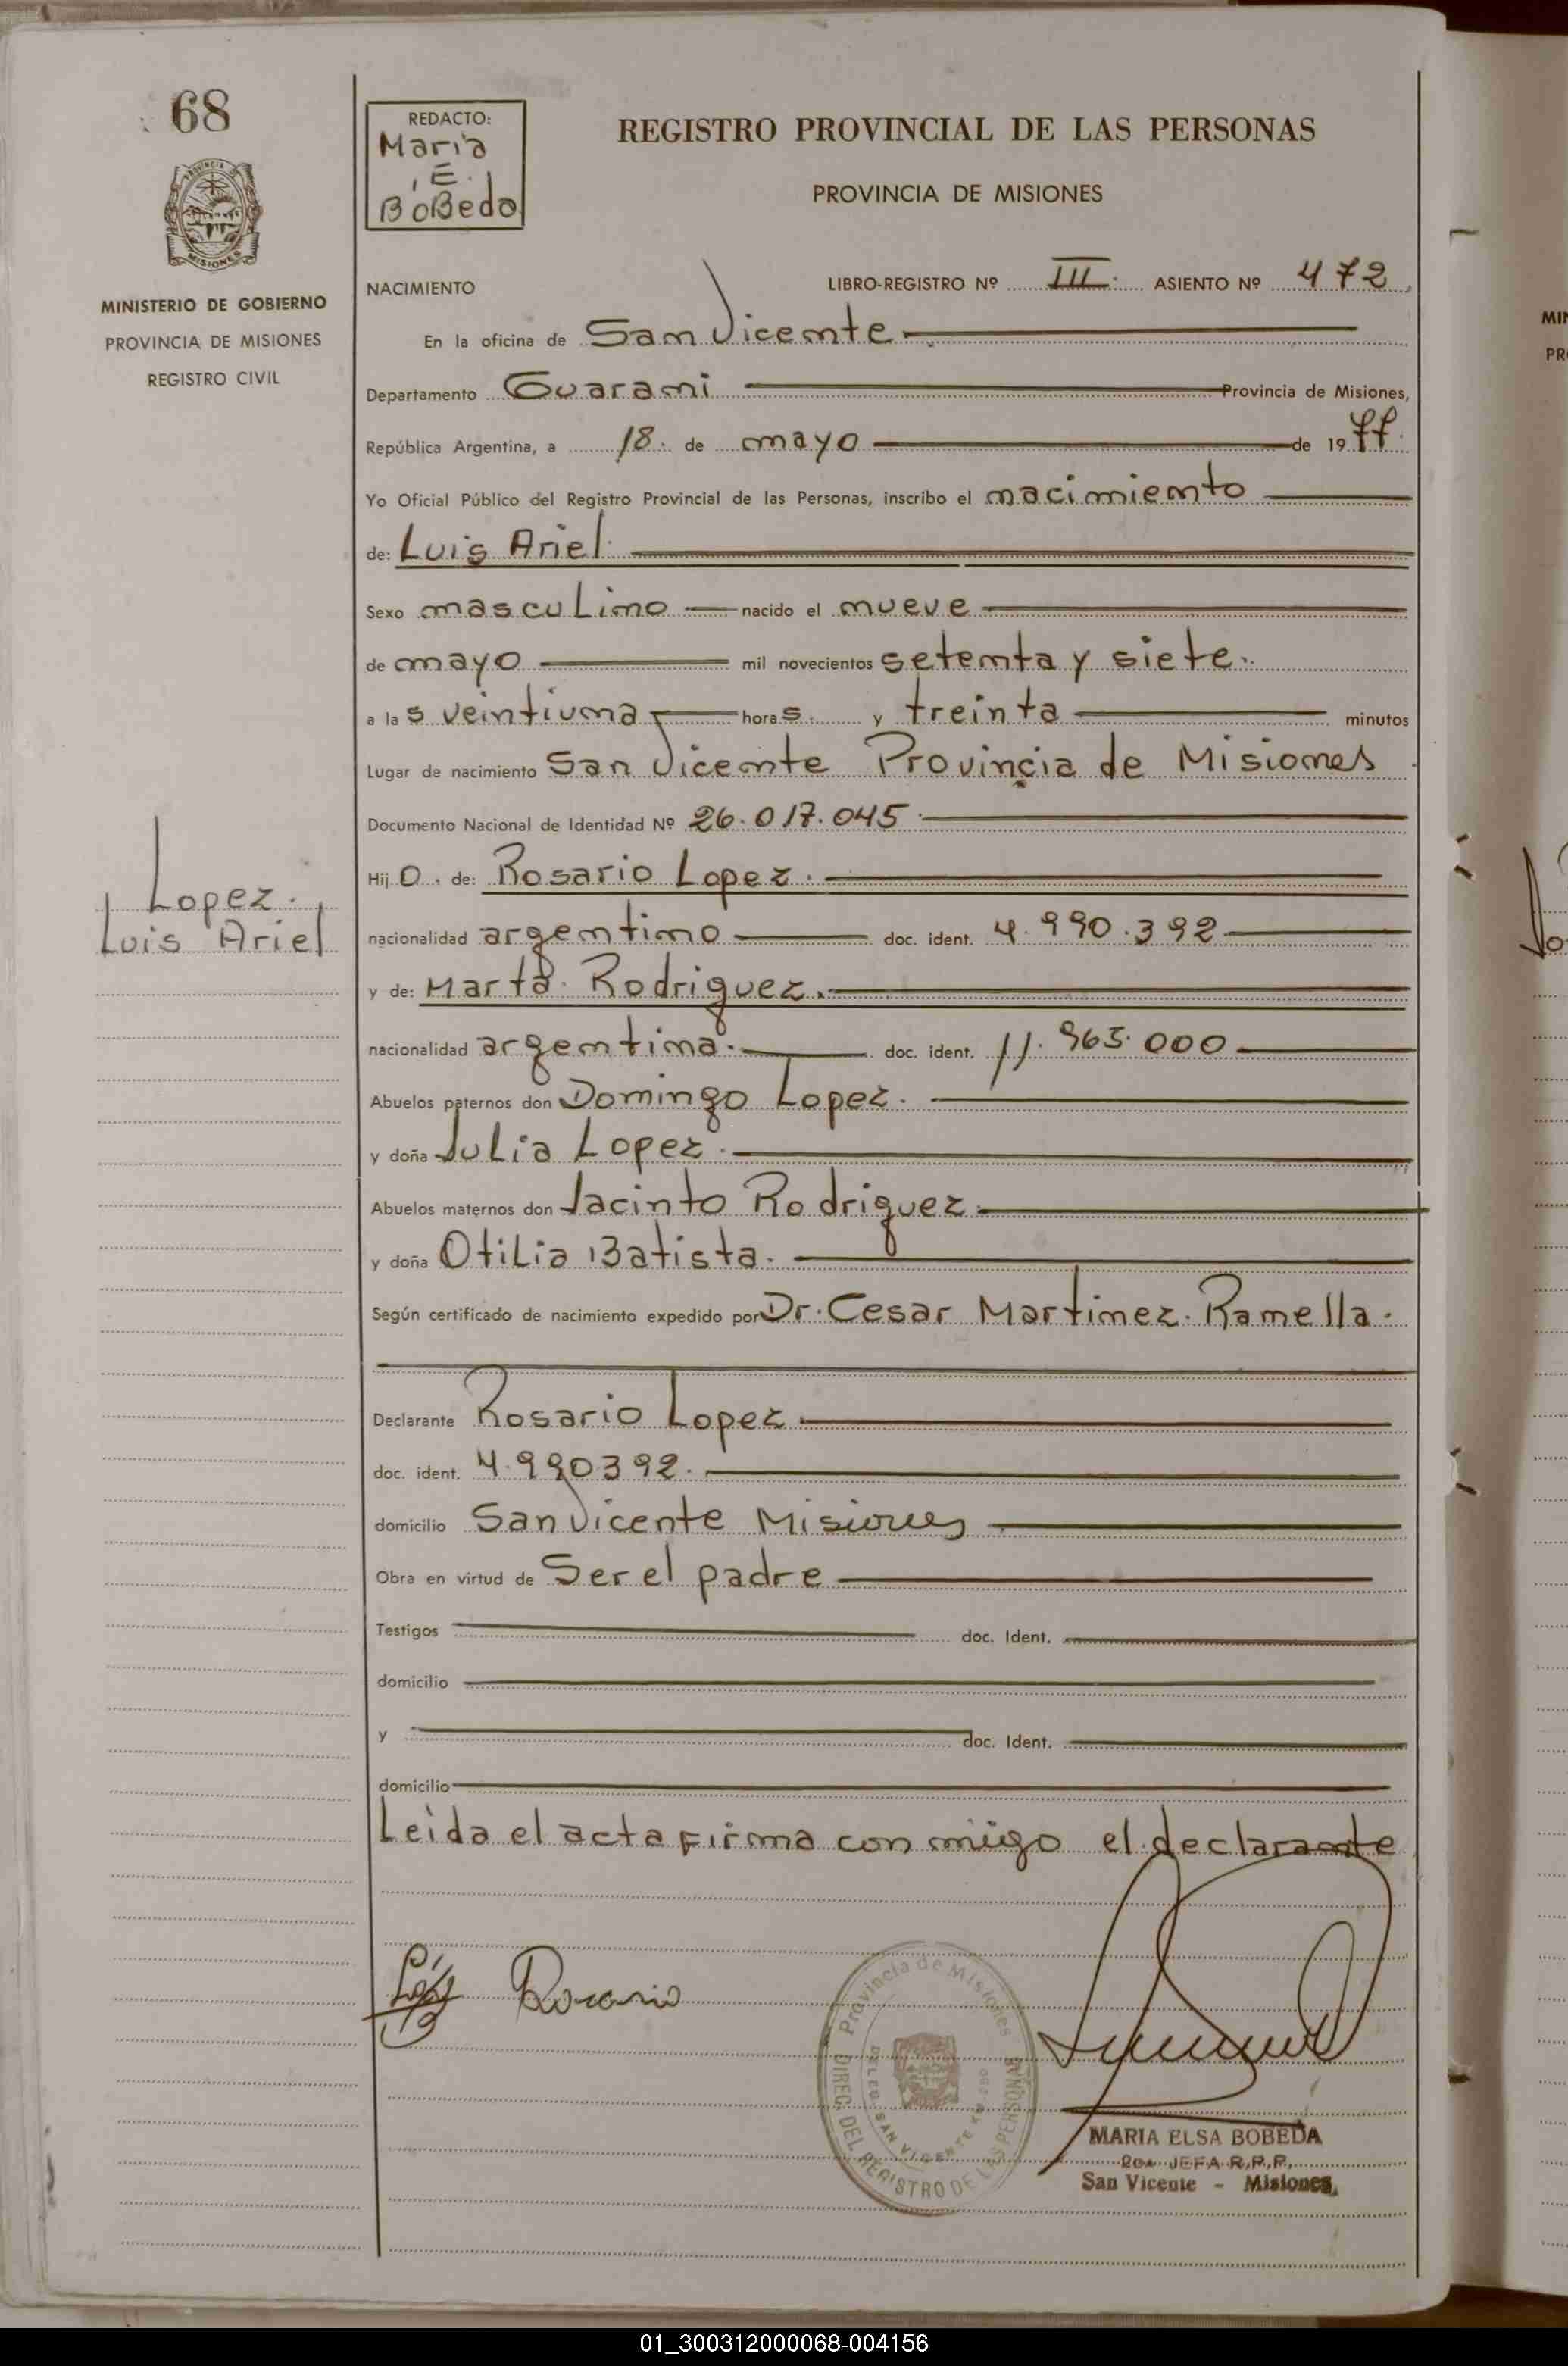 68
PROVINCIA DE
MISIONES
MINISTERIO DE GOBIERNO
PROVINCIA DE MISIONES
REGISTRO CIVIL
Lopez.
Luis Ariel
REDACTO:
Maria
E.
BoBeda
REGISTRO PROVINCIAL DE LAS PERSONAS
PROVINCIA DE MISIONES
NACIMIENTO LIBRO-REGISTRO Nº III. ASIENTO Nº 472
En la oficina de San Vicente
Departamento Guarani Provincia de Misiones,
República Argentina, a 18. de mayo de 1977.
Yo Oficial Público del Registro Provincial de las Personas, inscribo el nacimiento
de: Luis Ariel
Sexo masculino nacido el nueve
de mayo mil novecientos setenta y siete.
a las veintiuna horas. y treinta minutos
Lugar de nacimiento San Vicente Provincia de Misiones
Documento Nacional de Identidad Nº 26.017.045
Hijo. de: Rosario Lopez.
nacionalidad argentino doc. ident. 4.990.392
y de: Marta. Rodriguez.
nacionalidad argentina. doc. ident. 11.965.000
Abuelos paternos don Domingo Lopez.
y doña Julia Lopez.
Abuelos maternos don Jacinto Rodriguez.
y doña Otilia Batista.
Según certificado de nacimiento expedido por Dr. Cesar Martinez. Ramella.
Declarante Rosario Lopez
doc. ident. 4.990392.
domicilio San Vicente Misiones
Obra en virtud de Ser el padre
Testigos doc. Ident.
domicilio
y doc. Ident.
domicilio
Leida el acta firma con migo el declarante
López Rosario
Provincia de Misiones
DIREC. DEL REGISTRO DE LAS PERSONAS
DELEG. SAN VICENTE
MARIA ELSA BOBEDA
JEFA R.P.P.
San Vicente - Misiones
01_300312000068-004156